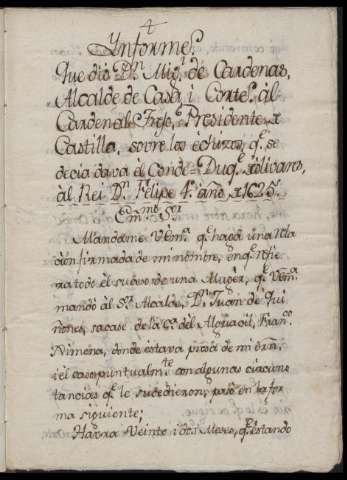 4
Ynforme,
Que dió Dn. Migl. de Cardenas,
Alcalde de Casa, i Corte, al
Cardenal Presidente
Castilla, sovre los echizos, qe. se
decia dava el Conde-Duqe.
al Rei Dn. Felipe 4º. año 1625.
Emmo. Sr.
Mandame VEma. qe. haga una
confirmada de mi nombre, en qe. refie
ra todo el suceso de una Muger, qe. VEma.
mandó al Sr. Alcalde, Dn. Juan de Qui
ñones, sacase de la Ca. del Alguacil, Franco.
Ximena, donde estava presa de mi orn.
i el caso puntualmte. con algunas circuns
tancias qe. le sucedieron, pasó en la for
ma siguiente;
Havra Veinte i dos Meses, qe. estando